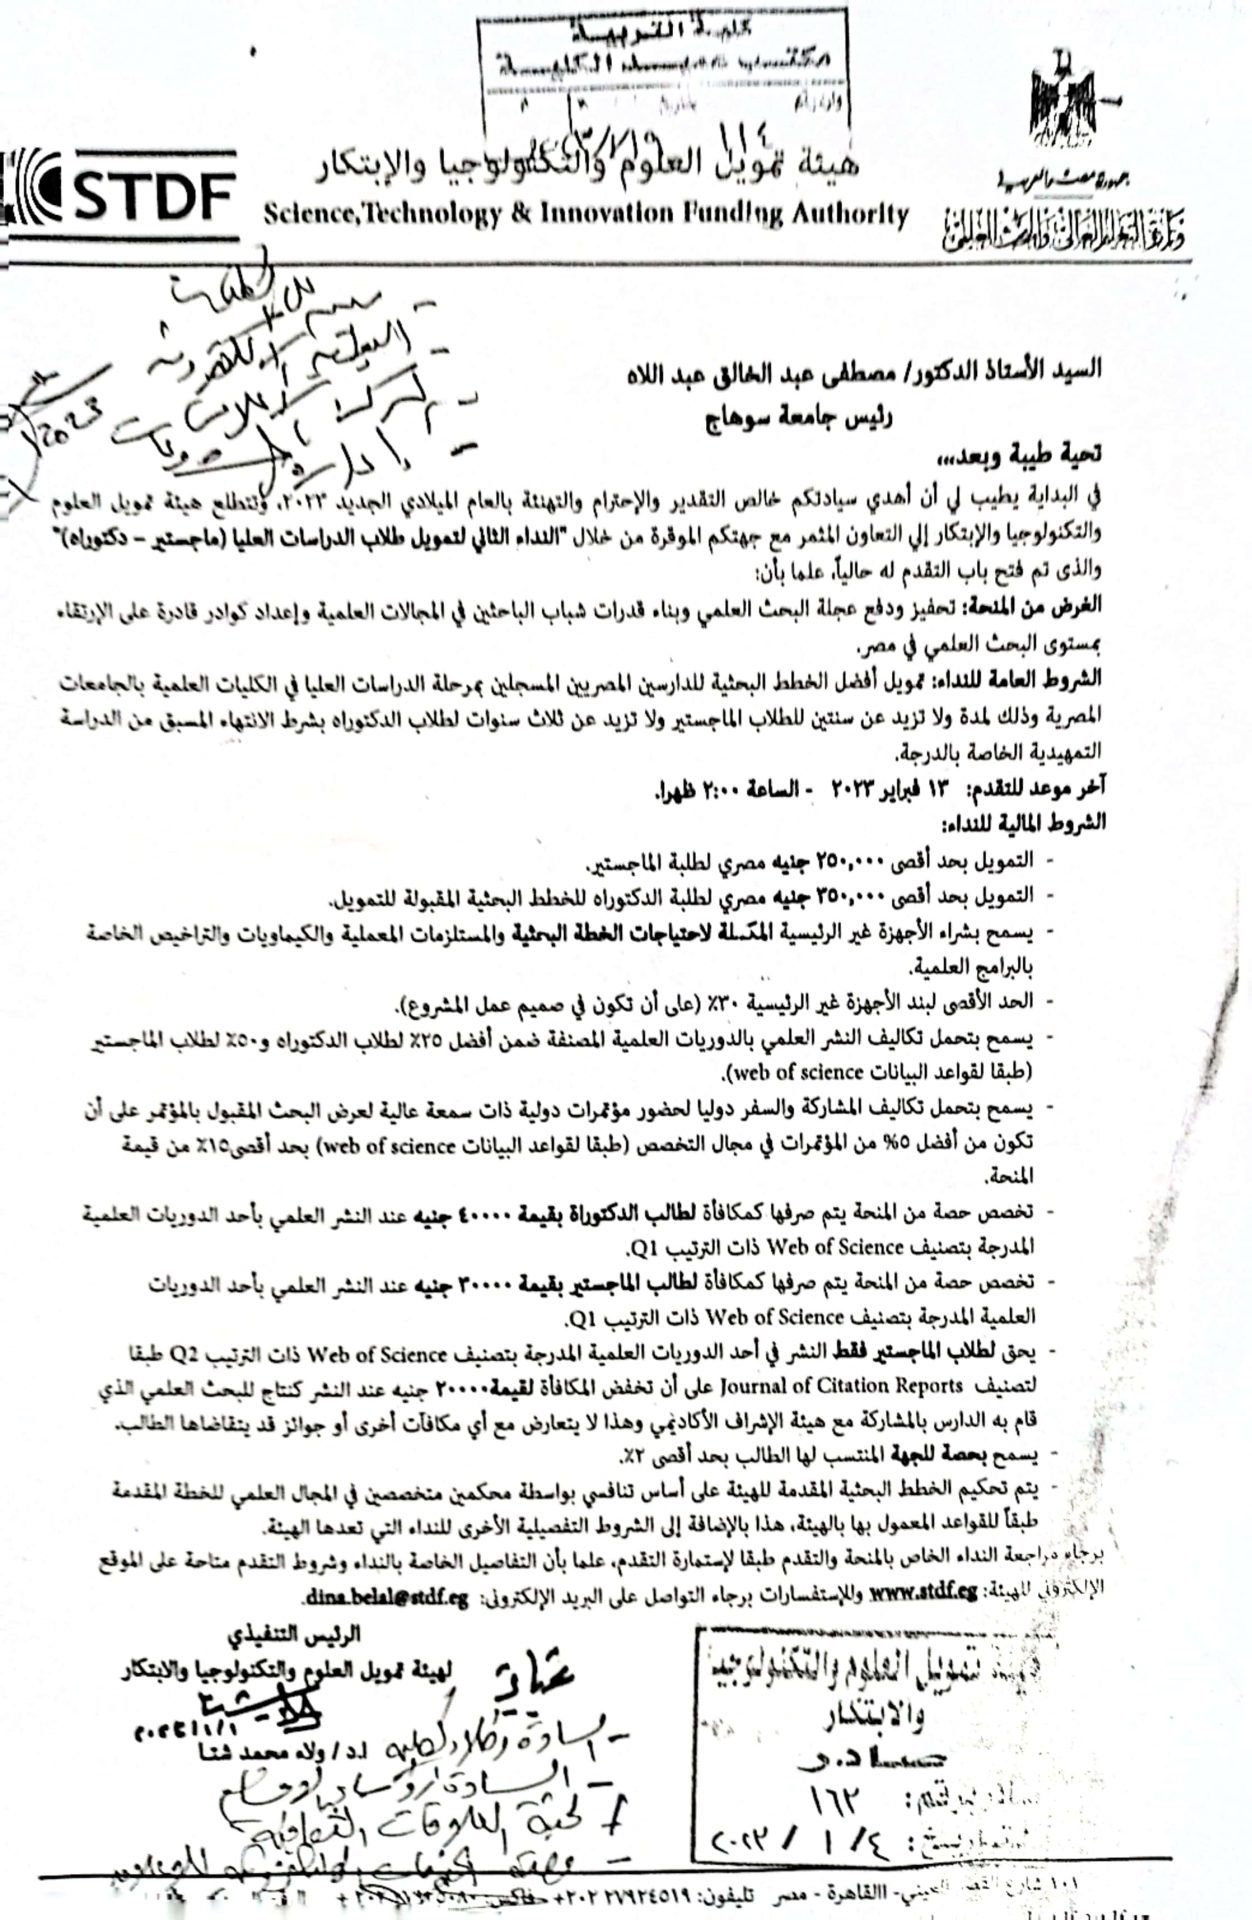 كلية التربية
١١٤
STDF
هيئة تمويل العلوم والتكنولوجيا والإبتكار
Science,Technology & Innovation Funding Authority
جمهورية مصر العربية
وزارة التعليم العالي والبحث العلمي
السيد الأستاذ الدكتور/ مصطفى عبد الخالق عبد اللاه
رئيس جامعة سوهاج
تحية طيبة وبعد،،،
في البداية يطيب لي أن أهدي سيادتكم خالص التقدير والإحترام والتهنئة بالعام الميلادي الجديد ٢٠٢٣، وتتطلع هيئة تمويل العلوم
والتكنولوجيا والإبتكار إلي التعاون المثمر مع جهتكم الموقرة من خلال "النداء الثاني لتمويل طلاب الدراسات العليا (ماجستير – دكتوراه)"
والذى تم فتح باب التقدم له حالياً، علما بأن:
الغرض من المنحة: تحفيز ودفع عجلة البحث العلمي وبناء قدرات شباب الباحثين في المجالات العلمية وإعداد كوادر قادرة على الإرتقاء
بمستوى البحث العلمي في مصر.
الشروط العامة للنداء: تمويل أفضل الخطط البحثية للدارسين المصريين المسجلين بمرحلة الدراسات العليا في الكليات العلمية بالجامعات
المصرية وذلك لمدة ولا تزيد عن سنتين للطلاب الماجستير ولا تزيد عن ثلاث سنوات لطلاب الدكتوراه بشرط الانتهاء المسبق من الدراسة
التمهيدية الخاصة بالدرجة.
آخر موعد للتقدم: ١٣ فبراير ٢٠٢٣ - الساعة ٢:٠٠ ظهرا.
الشروط المالية للنداء:
- التمويل بحد أقصى ٢٥٠,٠٠٠ جنيه مصري لطلبة الماجستير.
- التمويل بحد أقصى ٣٥٠,٠٠٠ جنيه مصري لطلبة الدكتوراه للخطط البحثية المقبولة للتمويل.
- يسمح بشراء الأجهزة غير الرئيسية المكملة لاحتياجات الخطة البحثية والمستلزمات المعملية والكيماويات والتراخيص الخاصة
بالبرامج العلمية.
- الحد الأقصى لبند الأجهزة غير الرئيسية ٣٠٪ (على أن تكون في صميم عمل المشروع).
- يسمح بتحمل تكاليف النشر العلمي بالدوريات العلمية المصنفة ضمن أفضل ٢٥٪ لطلاب الدكتوراه و٥٠٪ لطلاب الماجستير
(طبقا لقواعد البيانات web of science).
- يسمح بتحمل تكاليف المشاركة والسفر دوليا لحضور مؤتمرات دولية ذات سمعة عالية لعرض البحث المقبول بالمؤتمر على أن
تكون من أفضل ٥% من المؤتمرات في مجال التخصص (طبقا لقواعد البيانات web of science) بحد أقصى١٥٪ من قيمة
المنحة.
- تخصص حصة من المنحة يتم صرفها كمكافأة لطالب الدكتوراة بقيمة ٤٠٠٠٠ جنيه عند النشر العلمي بأحد الدوريات العلمية
المدرجة بتصنيف Web of Science ذات الترتيب Q1.
- تخصص حصة من المنحة يتم صرفها كمكافأة لطالب الماجستير بقيمة ٣٠٠٠٠ جنيه عند النشر العلمي بأحد الدوريات
العلمية المدرجة بتصنيف Web of Science ذات الترتيب Q1.
- يحق لطلاب الماجستير فقط النشر في أحد الدوريات العلمية المدرجة بتصنيف Web of Science ذات الترتيب Q2 طبقا
لتصنيف Journal of Citation Reports على أن تخفض المكافأة لقيمة٢٠٠٠٠ جنيه عند النشر كنتاج للبحث العلمي الذي
قام به الدارس بالمشاركة مع هيئة الإشراف الأكاديمي وهذا لا يتعارض مع أي مكافآت أخرى أو جوائز قد يتقاضاها الطالب.
- يسمح بحصة للجهة المنتسب لها الطالب بحد أقصى ٢٪.
- يتم تحكيم الخطط البحثية المقدمة للهيئة على أساس تنافسي بواسطة محكمين متخصصين في المجال العلمي للخطة المقدمة
طبقاً للقواعد المعمول بها بالهيئة، هذا بالإضافة إلى الشروط التفصيلية الأخرى للنداء التي تعدها الهيئة.
برجاء مراجعة النداء الخاص بالمنحة والتقدم طبقا لإستمارة التقدم، علما بأن التفاصيل الخاصة بالنداء وشروط التقدم متاحة على الموقع
الإلكتروني للهيئة: www.stdf.eg وللإستفسارات برجاء التواصل على البريد الإلكترونى: dina.belal@stdf.eg.
الرئيس التنفيذي
لهيئة تمويل العلوم والتكنولوجيا والابتكار
ا.د/ ولاء محمد شتا
تمويل العلوم والتكنولوجيا
والابتكار
صادر
١٦٢
٢٠٢٣/١/٤
- السادة وكلاء الكلية
- السادة رؤساء الأقسام
لجنة العلاقات الثقافية
١٠١ شارع القصر العيني- القاهرة - مصر تليفون: ٢٧٩٢٤٥١٩ ٢٠٢+ فاكس: